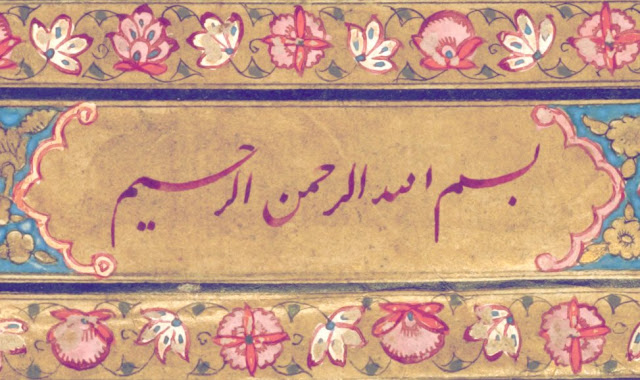 بسم الله الرحمن الرحیم